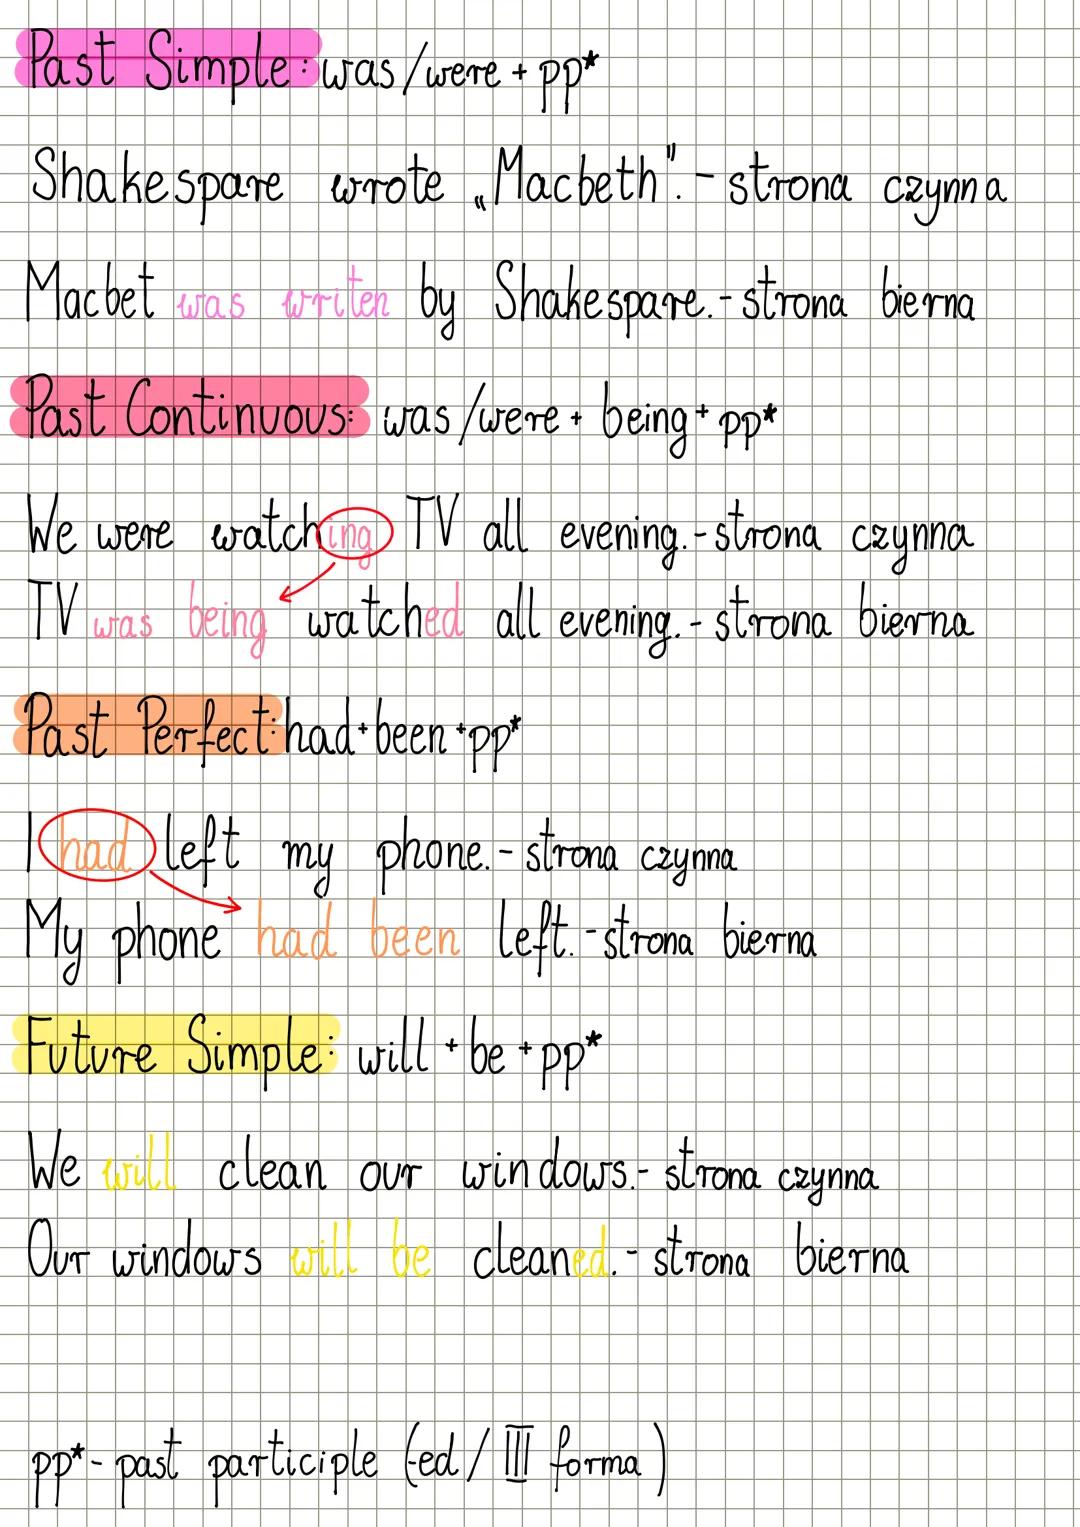 Past Simple: was/were + pp*
Shakespare wrote „Macbeth". - strona czynna
Macbet was writen by Shakespare. - strona bierna
Past Continuous: was/were + being + pp*
We were watching TV all evening. - strona czynna
TV was being watched all evening. - strona bierna
Past Perfect: had + been + pp*
I had left my phone. - strona czynna
My phone had been left. - strona bierna
Future Simple: will + be + pp*
We will clean our windows. - strona czynna
Our windows will be cleaned. - strona bierna
pp* - past participle (-ed / III forma)